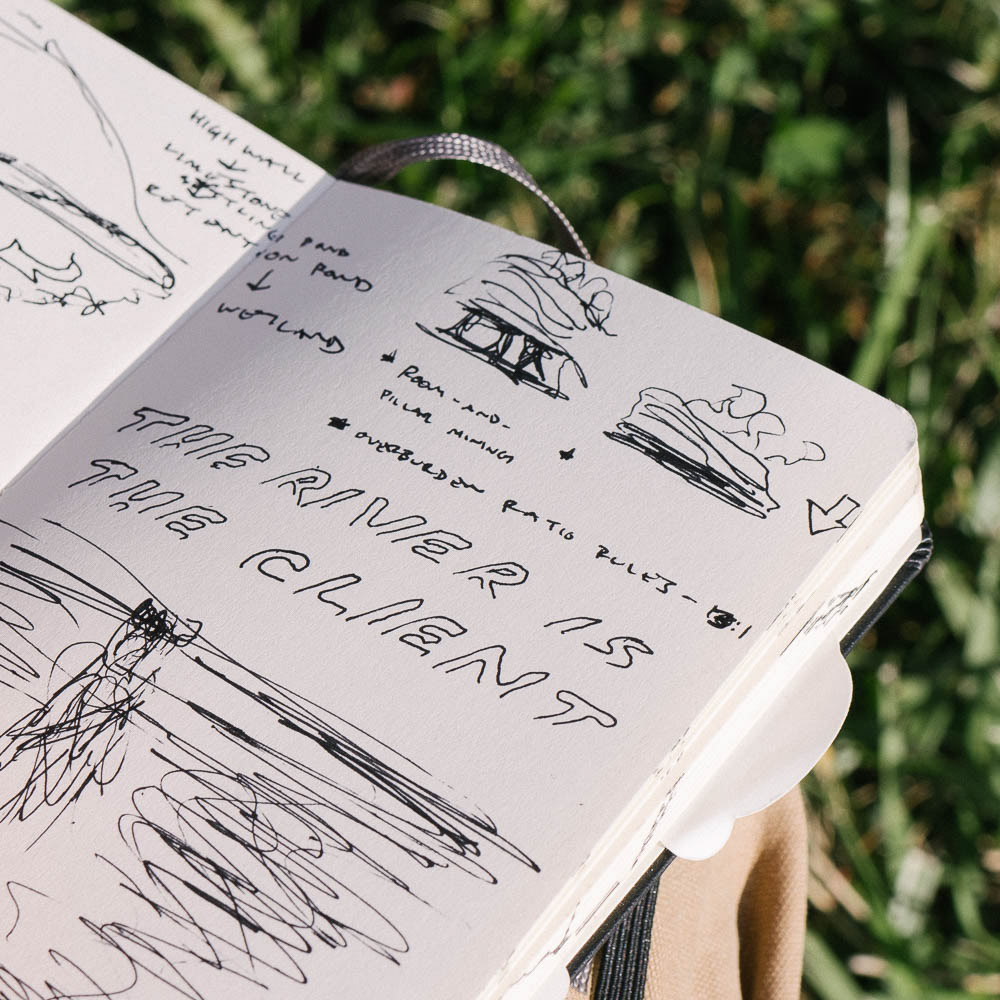 HIGH WALL
LIMESTONE
POND
ION POND
WETLAND
ROOM-AND-
PILLAR MINING
OVERBURDEN RATIO RULES -
THE RIVER IS
THE CLIENT